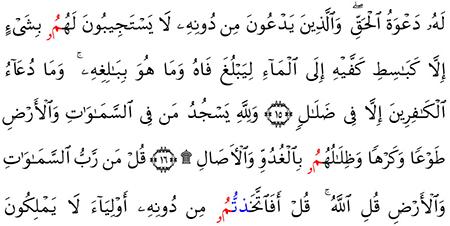 لَهُۥ دَعْوَةُ ٱلْحَقِّ ۖ وَٱلَّذِينَ يَدْعُونَ مِن دُونِهِۦ لَا يَسْتَجِيبُونَ لَهُمُۥ بِشَىْءٍ
إِلَّا كَبَـٰسِطِ كَفَّيْهِ إِلَى ٱلْمَآءِ لِيَبْلُغَ فَاهُ وَمَا هُوَ بِبَـٰلِغِهِۦ ۚ وَمَا دُعَآءُ
ٱلْكَـٰفِرِينَ إِلَّا فِى ضَلَـٰلٍ ۝١٥ وَلِلَّهِ يَسْجُدُ مَن فِى ٱلسَّمَـٰوَٰتِ وَٱلْأَرْضِ
طَوْعًا وَكَرْهًا وَظِلَـٰلُهُمُۥ بِٱلْغُدُوِّ وَٱلْـَٔاصَالِ ۩ ۝١٦ قُلْ مَن رَّبُّ ٱلسَّمَـٰوَٰتِ
وَٱلْأَرْضِ قُلِ ٱللَّهُ ۚ قُلْ أَفَٱتَّخَذتُّمُۥ مِن دُونِهِۦ أَوْلِيَآءَ لَا يَمْلِكُونَ